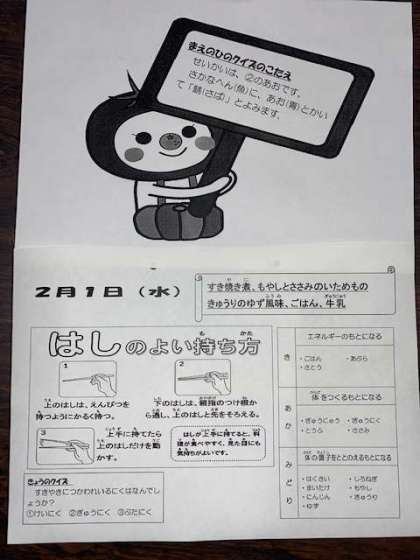 まえのひのクイズのこたえ
せいかいは、②のあおです。
さかなへん(魚)に、あお(青)とかい
て「鯖(さば)」とよみます。
2月1日(水)
すき焼き煮、もやしとささみのいためもの
きゅうりのゆず風味、ごはん、牛乳
はしのよい持ち方
1
上のはしは、えんぴつを
持つようにかるく持つ。
2
下のはしは、親指のつけ根か
ら通し、上のはしと先をそろえる。
3
上手に持てたら
上のはしだけを動
かす。
はしが上手に持てると、料
理が食べやすく、見た目にも
気持ちがよいです。
きょうのクイズ
すきやきにつかわれるにくはなんでし
ょうか?
①けいにく ②ぎゅうにく ③ぶたにく
エネルギーのもとになる
き
・ごはん ・あぶら
・さとう
体をつくるもとになる
あか
・ぎゅうにゅう ・ぎゅうにく
・とうふ ・ささみ
体の調子をととのえるもとになる
みどり
・はくさい ・しろねぎ
・まいたけ ・もやし
・にんじん ・きゅうり
・ゆず